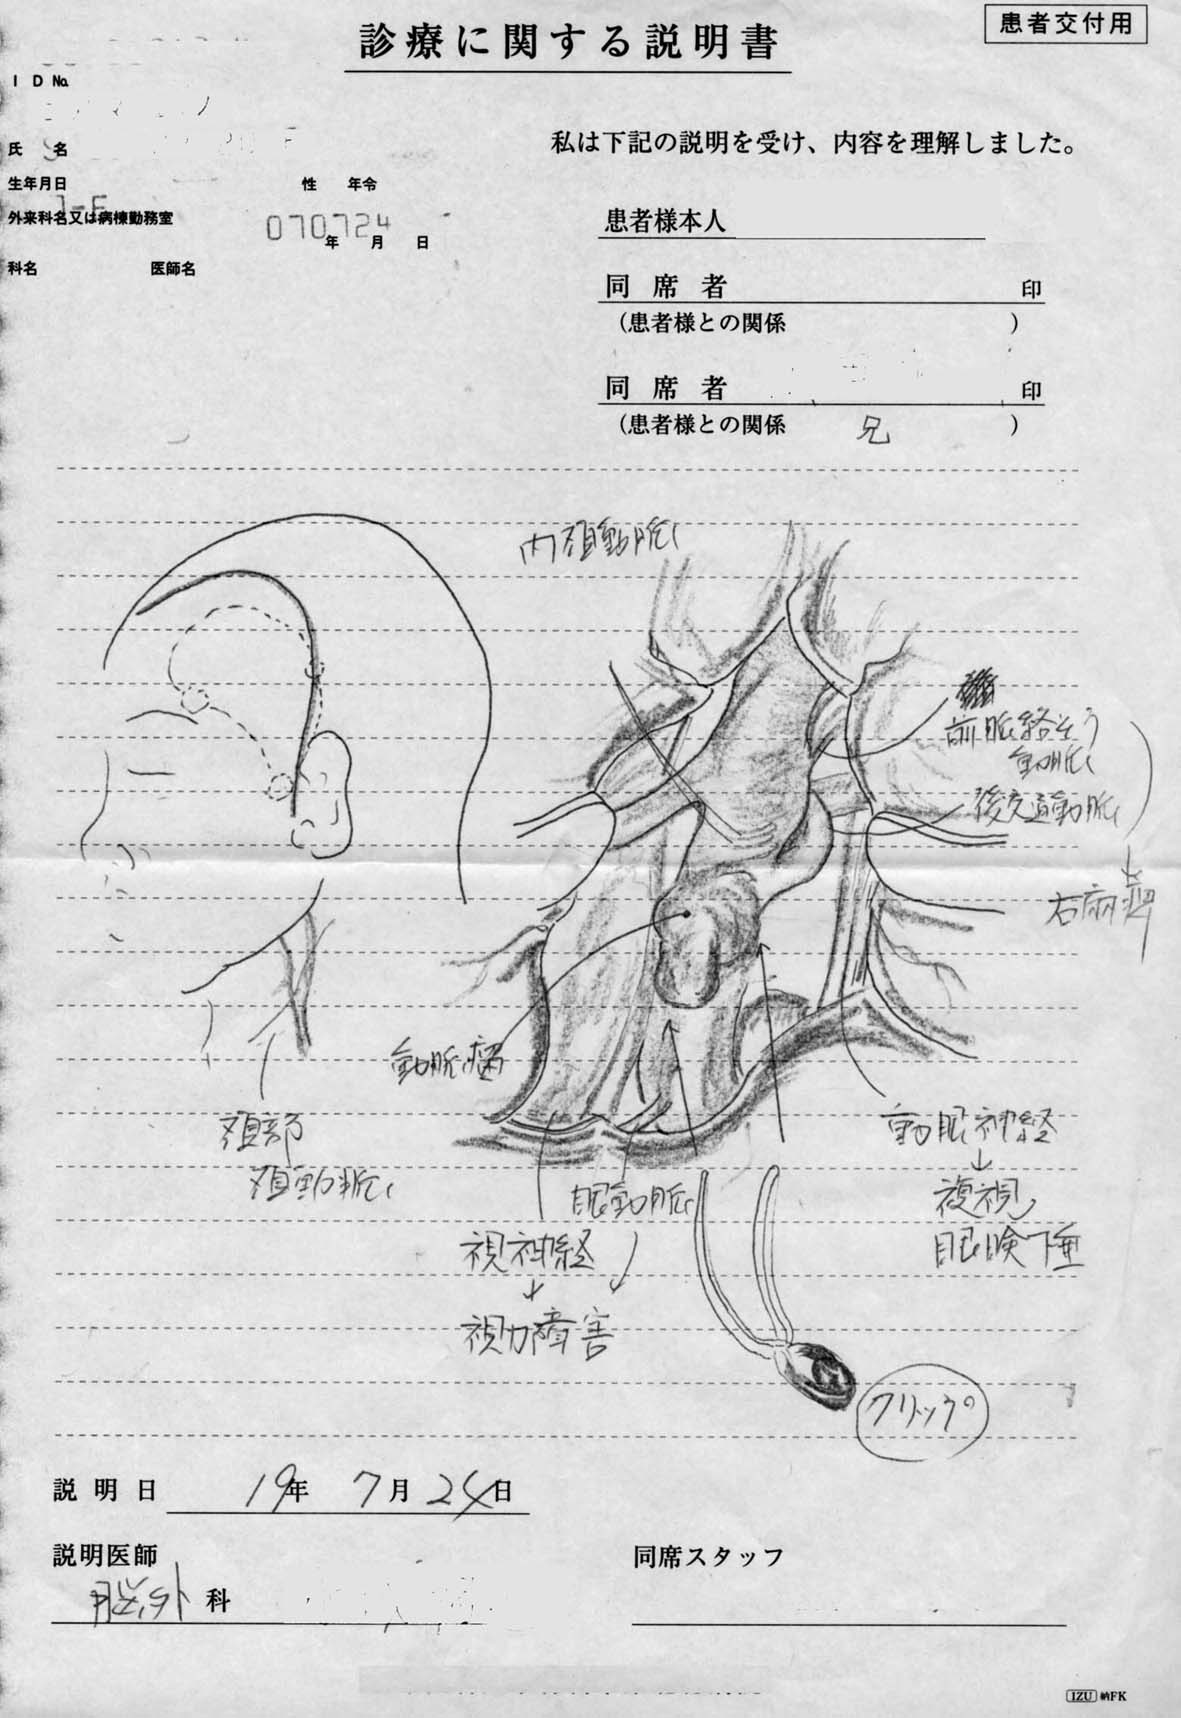 診療に関する説明書
患者交付用
ＩＤ№
氏 名
生年月日 性 年令
外来科名又は病棟勤務室
070724
年 月 日
科名 医師名
私は下記の説明を受け、内容を理解しました。
患者様本人
同席者 印
（患者様との関係 ）
同席者 印
（患者様との関係 兄 ）
内頚動脈
前脈絡そう
動脈
後交通動脈
右麻痺
動脈瘤
頚部
頚動脈
眼動脈
視神経
↓
視力障害
動眼神経
↓
複視
眼瞼下垂
クリップ
説明日 19年 7月 24日
説明医師
脳外 科
同席スタッフ
IZU 納FK